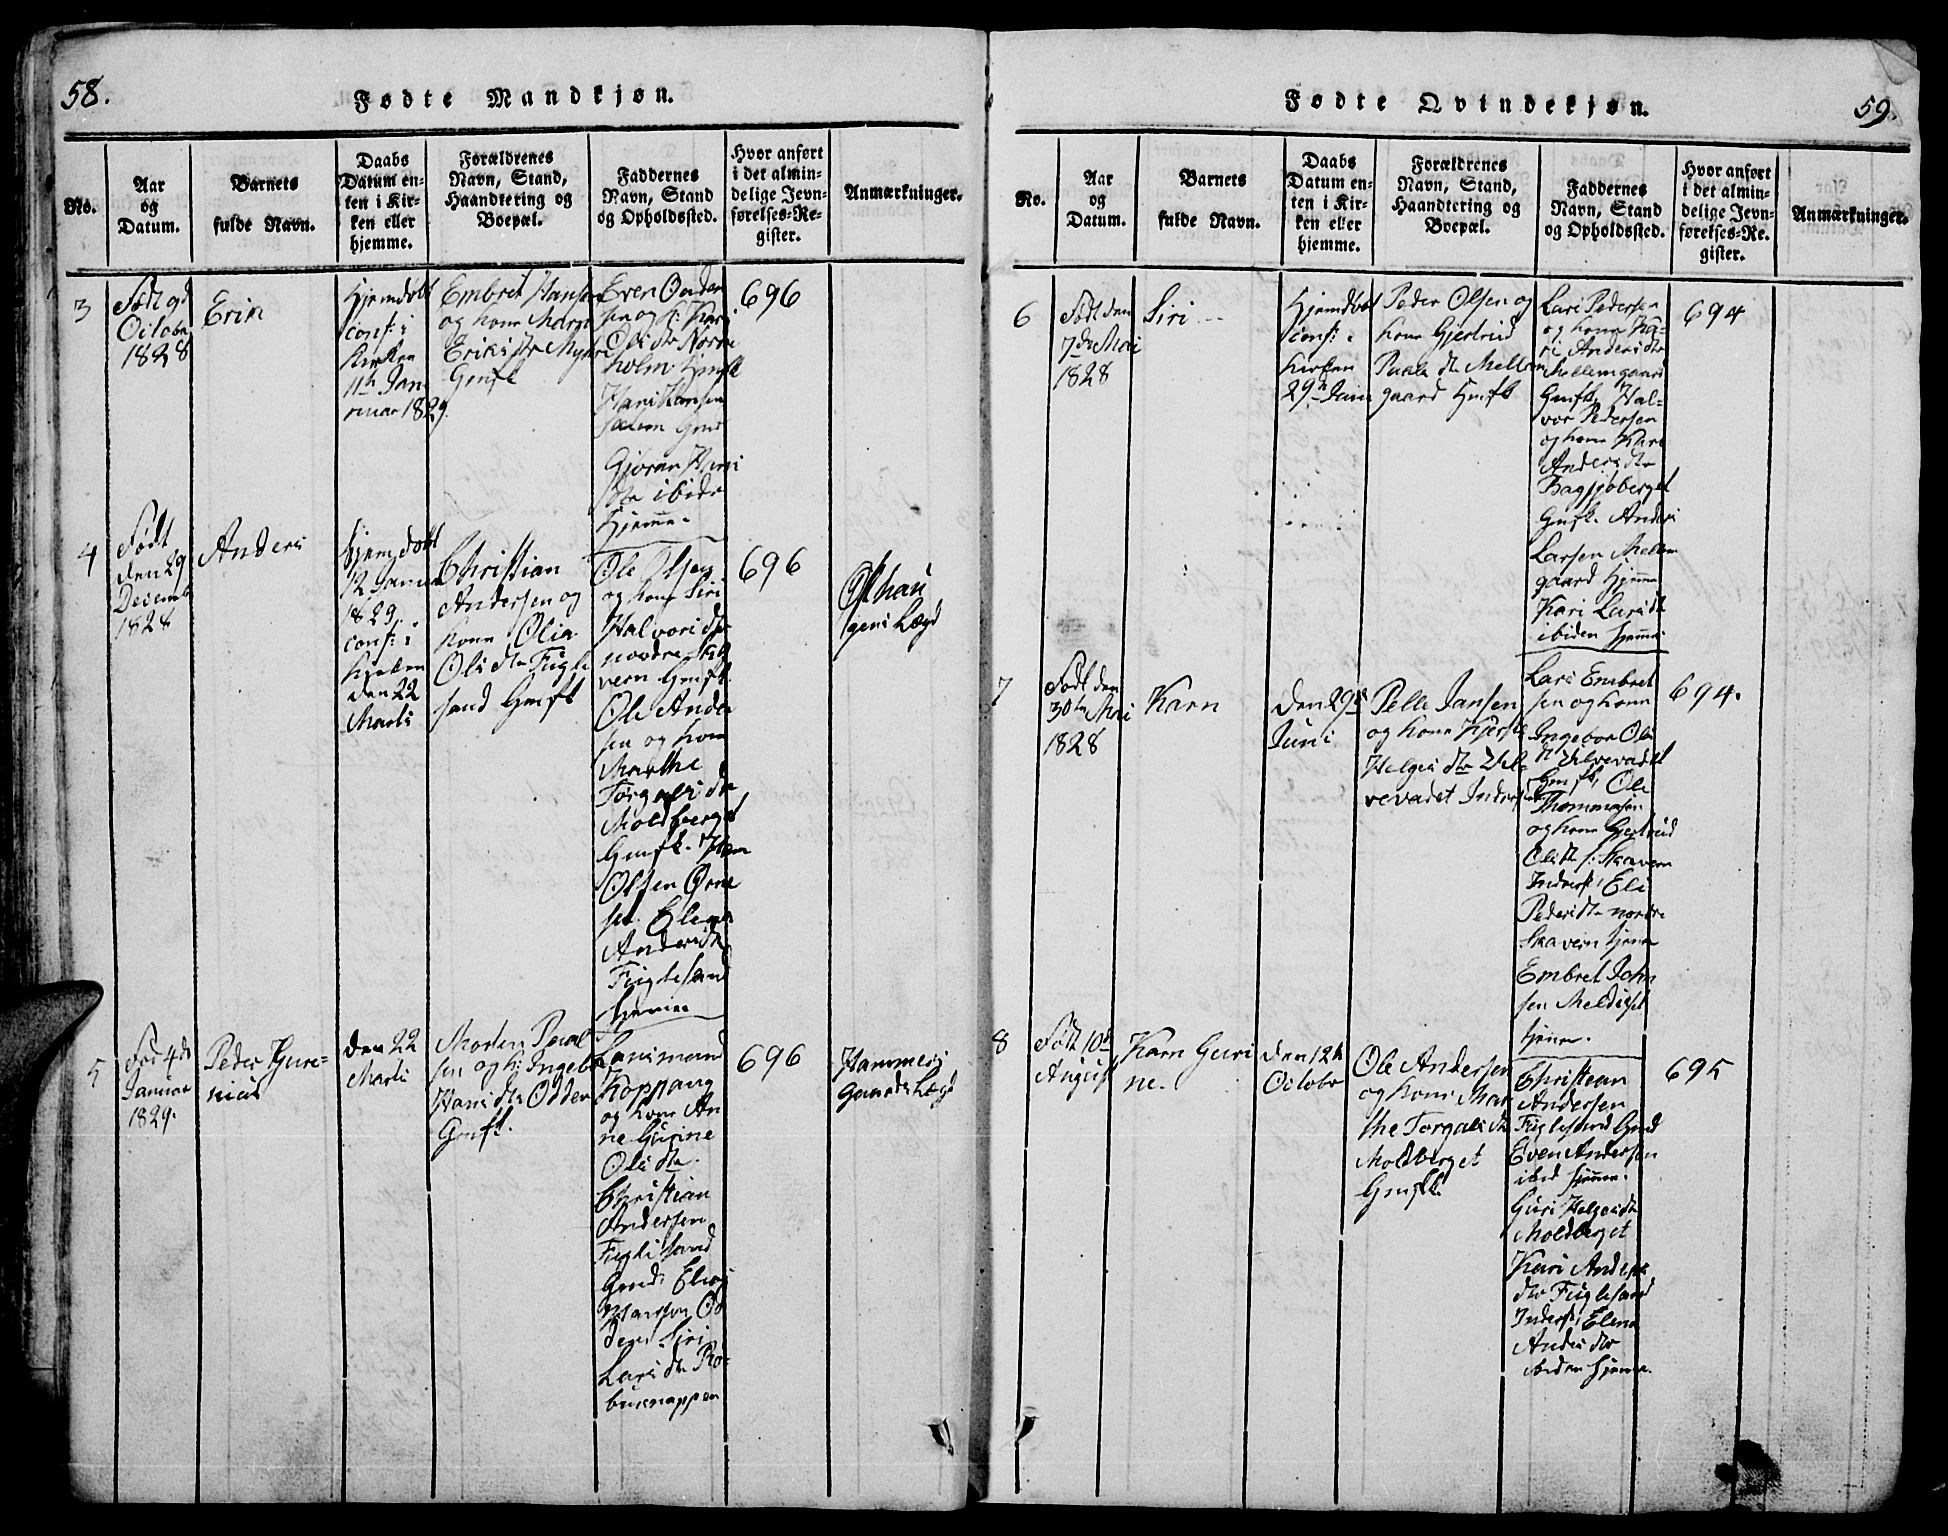 58.
Fødte Mandkjøn.
No.
Aar
og
Datum.
Barnets
fulde Navn.
Daabs
Datum en-
ten i Kir-
ken eller
hjemme.
Forældrenes
Navn, Stand,
Haandtering og
Boepæl.
Faddernes
Navn, Stand
og Opholdssted.
Hvor anført
i det almin-
delige Jevn-
førelses-Re-
gister.
Anmærkninger.
3
Født 9d
Octobr
1828
Erik
Hjemdøbt
conf: i
Kirken
11te Jan
ruar 1829.
Embret Hansen
og kone Marg
Eriksdtr
Gmft
Even
sen og k: Kari
Olsdtr
holm
Hans Hansen
Gjøran Hans
dtr ibide
hjemme.
696
4
Født
den 29
Decemb
1828
Anders
hjemdøbt
12 Janua
1829.
conf: i
Kirken
den 22
Marts
Christian
Andersen og
kone Olia
Olsdtr Fugle
sand Gmft
Ole Olsen
og kone Siri
Halvorsdtr
nordre Ska
vern Gmft.
Ole Ander
sen og kone
Marthe
Torgalsdtr
Moldberget
Gmfk.
Olsen
Elena
Andersdtr
Fuglesand
hjemme
696
gens Lægd
5
Fød 4de
Januar
1829.
Peder
nius
den 22
Marts
Morten Paul
sen og k: Ingebr
Hansdtr Odden
Gmft.
Lansmand
Koppang
og kone An
ne Gurine
Olsdtr
Christian
Andersen
Fuglesand
Gmd:
Hansen Od
den Siri
Larsdtr Ro-
busnappen
696
Hammers
Gaards Lægd
Fødte Qvindekjøn.
59.
No.
Aar
og
Datum.
Barnets
fulde Navn.
Daabs
Datum en-
ten i Kir-
ken eller
hjemme.
Forældrenes
Navn, Stand,
Haandtering og
Boepæl.
Faddernes
Navn, Stand
og Opholdssted.
Hvor anført
i det almin-
delige Jevn-
førelses-Re-
gister.
Anmærkninger.
6
Født den
7de Mai
1828
Siri
Hjemdøbt
conf: i
Kirken
29n Juni
Peder Olsen og
kone Gjertrud
Paals dtr Mellem
gaard Gmft
Lars Pedersen
og kone Ka-
ri Andersdtr
Mellemgaard
Gmfk, Hal-
vor Pedersen
og kone Kari
Andersdtr
Bagsjøberget
Gmfk. Anders
Larsen Mellem
gaard hjemme
Kari Larsdtr
ibiden hjemme.
694
7
Født den
30te Mai
1828
Karn
den 29d
Juni
Pelle Jansen
og kone Kjersti
Helgesdtr Ulv
vevadet Inderst
Lars Embret
sen og kone
Ingebor Ols
dtr Ulvevadet
Gmfk, Ole
Thommasen
og kone Gjertrud
Olsdtr s: Skavern
Inderst, Eli
Pedersdtr nordre
Skavern hjeme
Embret John
sen Meldiset
hjeme.
694.
8
Født 10de
August
Karn Guri
ne.
den 12te
Octobr
Ole Andersen
og kone Mar
the Torgalsdtr
Moldberget
Gmfk.
Christian
Andersen
Fuglesand Gmd
Even Andersen
ibid hjemme.
Guri Helgesdtr
Moldberget
Kari Anders
dtr Fuglesand
Inderst, Elena
Andersdtr
ibiden hjemme.
695